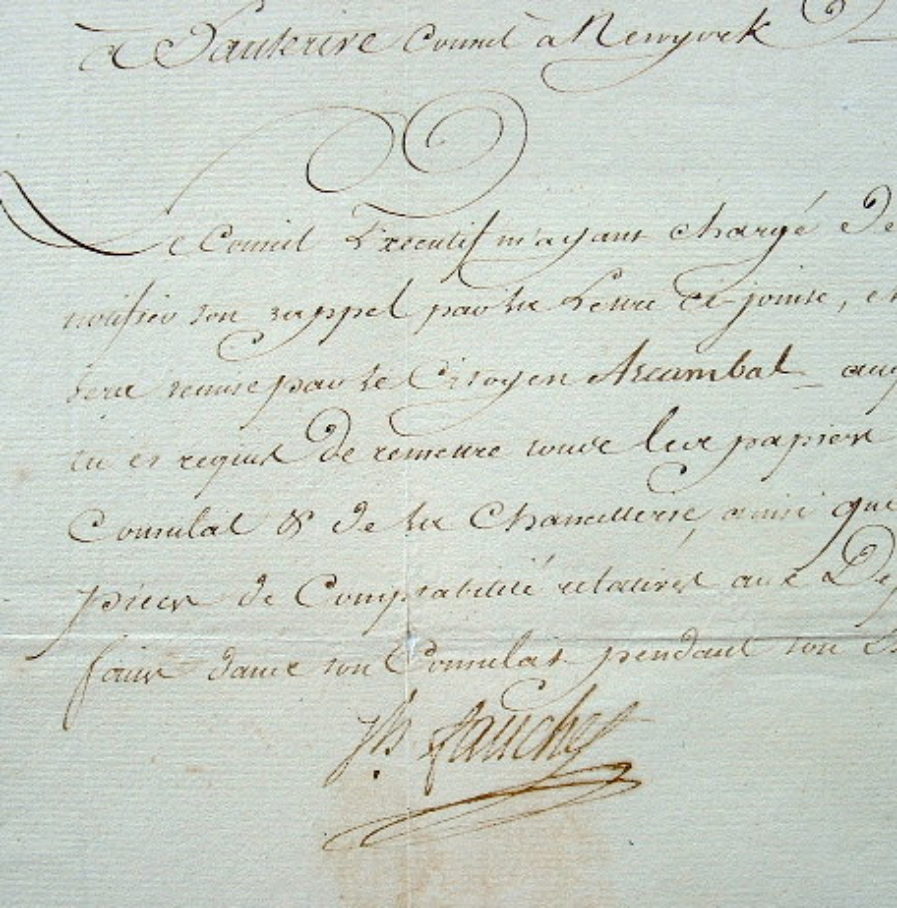 à Hauterive Consul à Newyork
Le Conseil Executif m'ayant chargé de
notifier ton rappel par la Lettre ci-jointe, et
sera remise par le Citoyen Arcambal
tu es requis de remettre tous les papiers
Consulat & de la Chancellerie, ainsi que
pieces de Comptabilité relatives aux
faites dans ton Consulat pendant ton
Jh. Fauchet